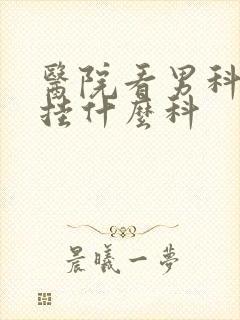 醫院看男科
挂什麼科
晨曦一夢